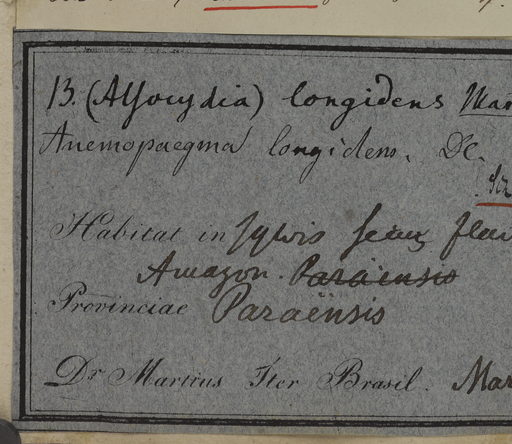 B. (Alsocydia) longidens Mar
Anemopaegma longidens. DC.
Habitat in sylvis secus fluv
Amazon. Paraënsis
Provinciae Paraënsis
Dr Martius Iter Brasil. Mar